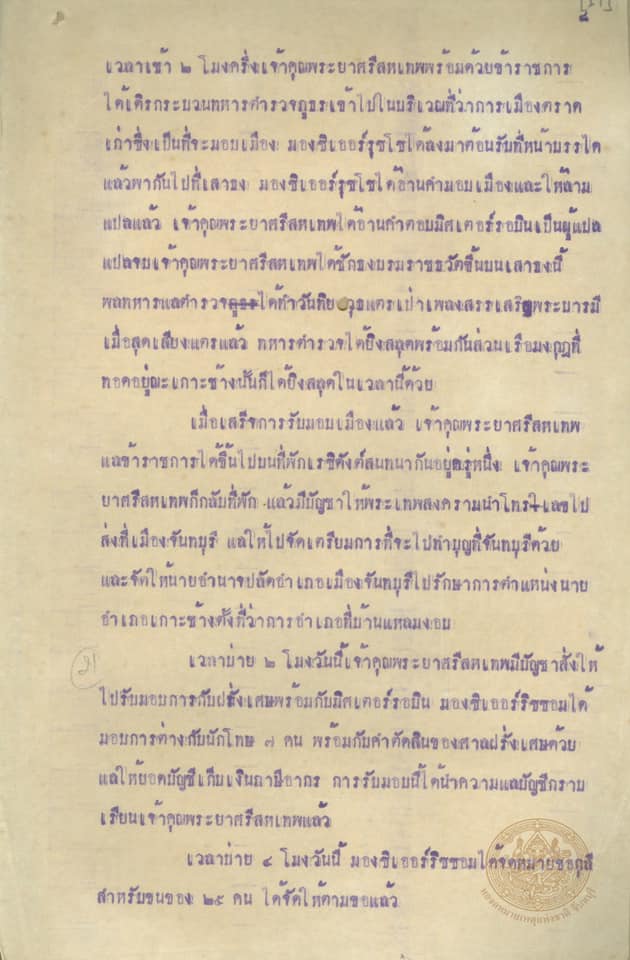 ๔
เวลาเช้า ๒ โมงครึ่งเจ้าคุณพระยาศรีสหเทพพร้อมด้วยข้าราชการ
ได้เดิรกระบวนทหารตำรวจภูธรเข้าไปในบริเวณที่ว่าการเมืองตราด
เก่าซึ่งเป็นที่จะมอบเมือง มองซิเออร์รุซโซได้ลงมาต้อนรับที่หน้าบรรได
แล้วพากันไปที่เสาธง มองซิเออร์รุซโซได้อ่านคำมอบเมืองและให้ล่าม
แปลแล้ว เจ้าคุณพระยาศรีสหเทพได้อ่านคำตอบมิสเตอร์รอบินเป็นผู้แปล
แปลจบเจ้าคุณพระยาศรีสหเทพได้ชักธงบรมราชธวัตขึ้นบนเสาธงนี้
พลทหารแลตำรวจภูธรได้ทำวันทิยาวุธแตรเป่าเพลงสรรเสริญพระบารมี
เมื่อสุดเสียงแตรแล้ว ทหารตำรวจได้ยิงสลุตพร้อมกันส่วนเรือมงกุฎที่
ทอดอยู่ณะเกาะช้างนั้นก็ได้ยิงสลุตในเวลานี้ด้วย
เมื่อเสร็จการรับมอบเมืองแล้ว เจ้าคุณพระยาศรีสหเทพ
แลข้าราชการได้ขึ้นไปบนที่พักเรซิดังต์สนทนากันอยู่ครู่หนึ่ง เจ้าคุณพระ
ยาศรีสหเทพก็กลับที่พัก แล้วมีบัญชาให้พระเทพสงครามนำโทรเลขไป
ส่งที่เมืองจันทบุรี แลให้ไปจัดเตรียมการที่จะไปทำบุญที่จันทบุรีด้วย
และจัดให้นายอำนาจปลัดอำเภอเมืองจันทบุรีไปรักษาการตำแหน่งนาย
อำเภอเกาะช้างตั้งที่ว่าการอำเภอที่บ้านแหลมงอบ
เวลาบ่าย ๒ โมงวันนี้เจ้าคุณพระยาศรีสหเทพมีบัญชาสั่งให้
ไปรับมอบการกับฝรั่งเศษพร้อมกับมิศเตอร์รอบิน มองซิเออร์ริชชอมได้
มอบการต่างกับนักโทษ ๗ คน พร้อมกับคำตัดสินของศาลฝรั่งเศษด้วย
แลให้ยอดบัญชีเก็บเงินภาษีอากร การรับมอบนี้ได้นำความแลบัญชีกราบ
เรียนเจ้าคุณพระยาศรีสหเทพแล้ว
เวลาบ่าย ๔ โมงวันนี้ มองซิเออร์ริชชอมได้จดหมายขอกุลี
สำหรับขนของ ๒๕ คน ได้จัดให้ตามขอแล้ว
หอจดหมายเหตุแห่งชาติ จันทบุรี